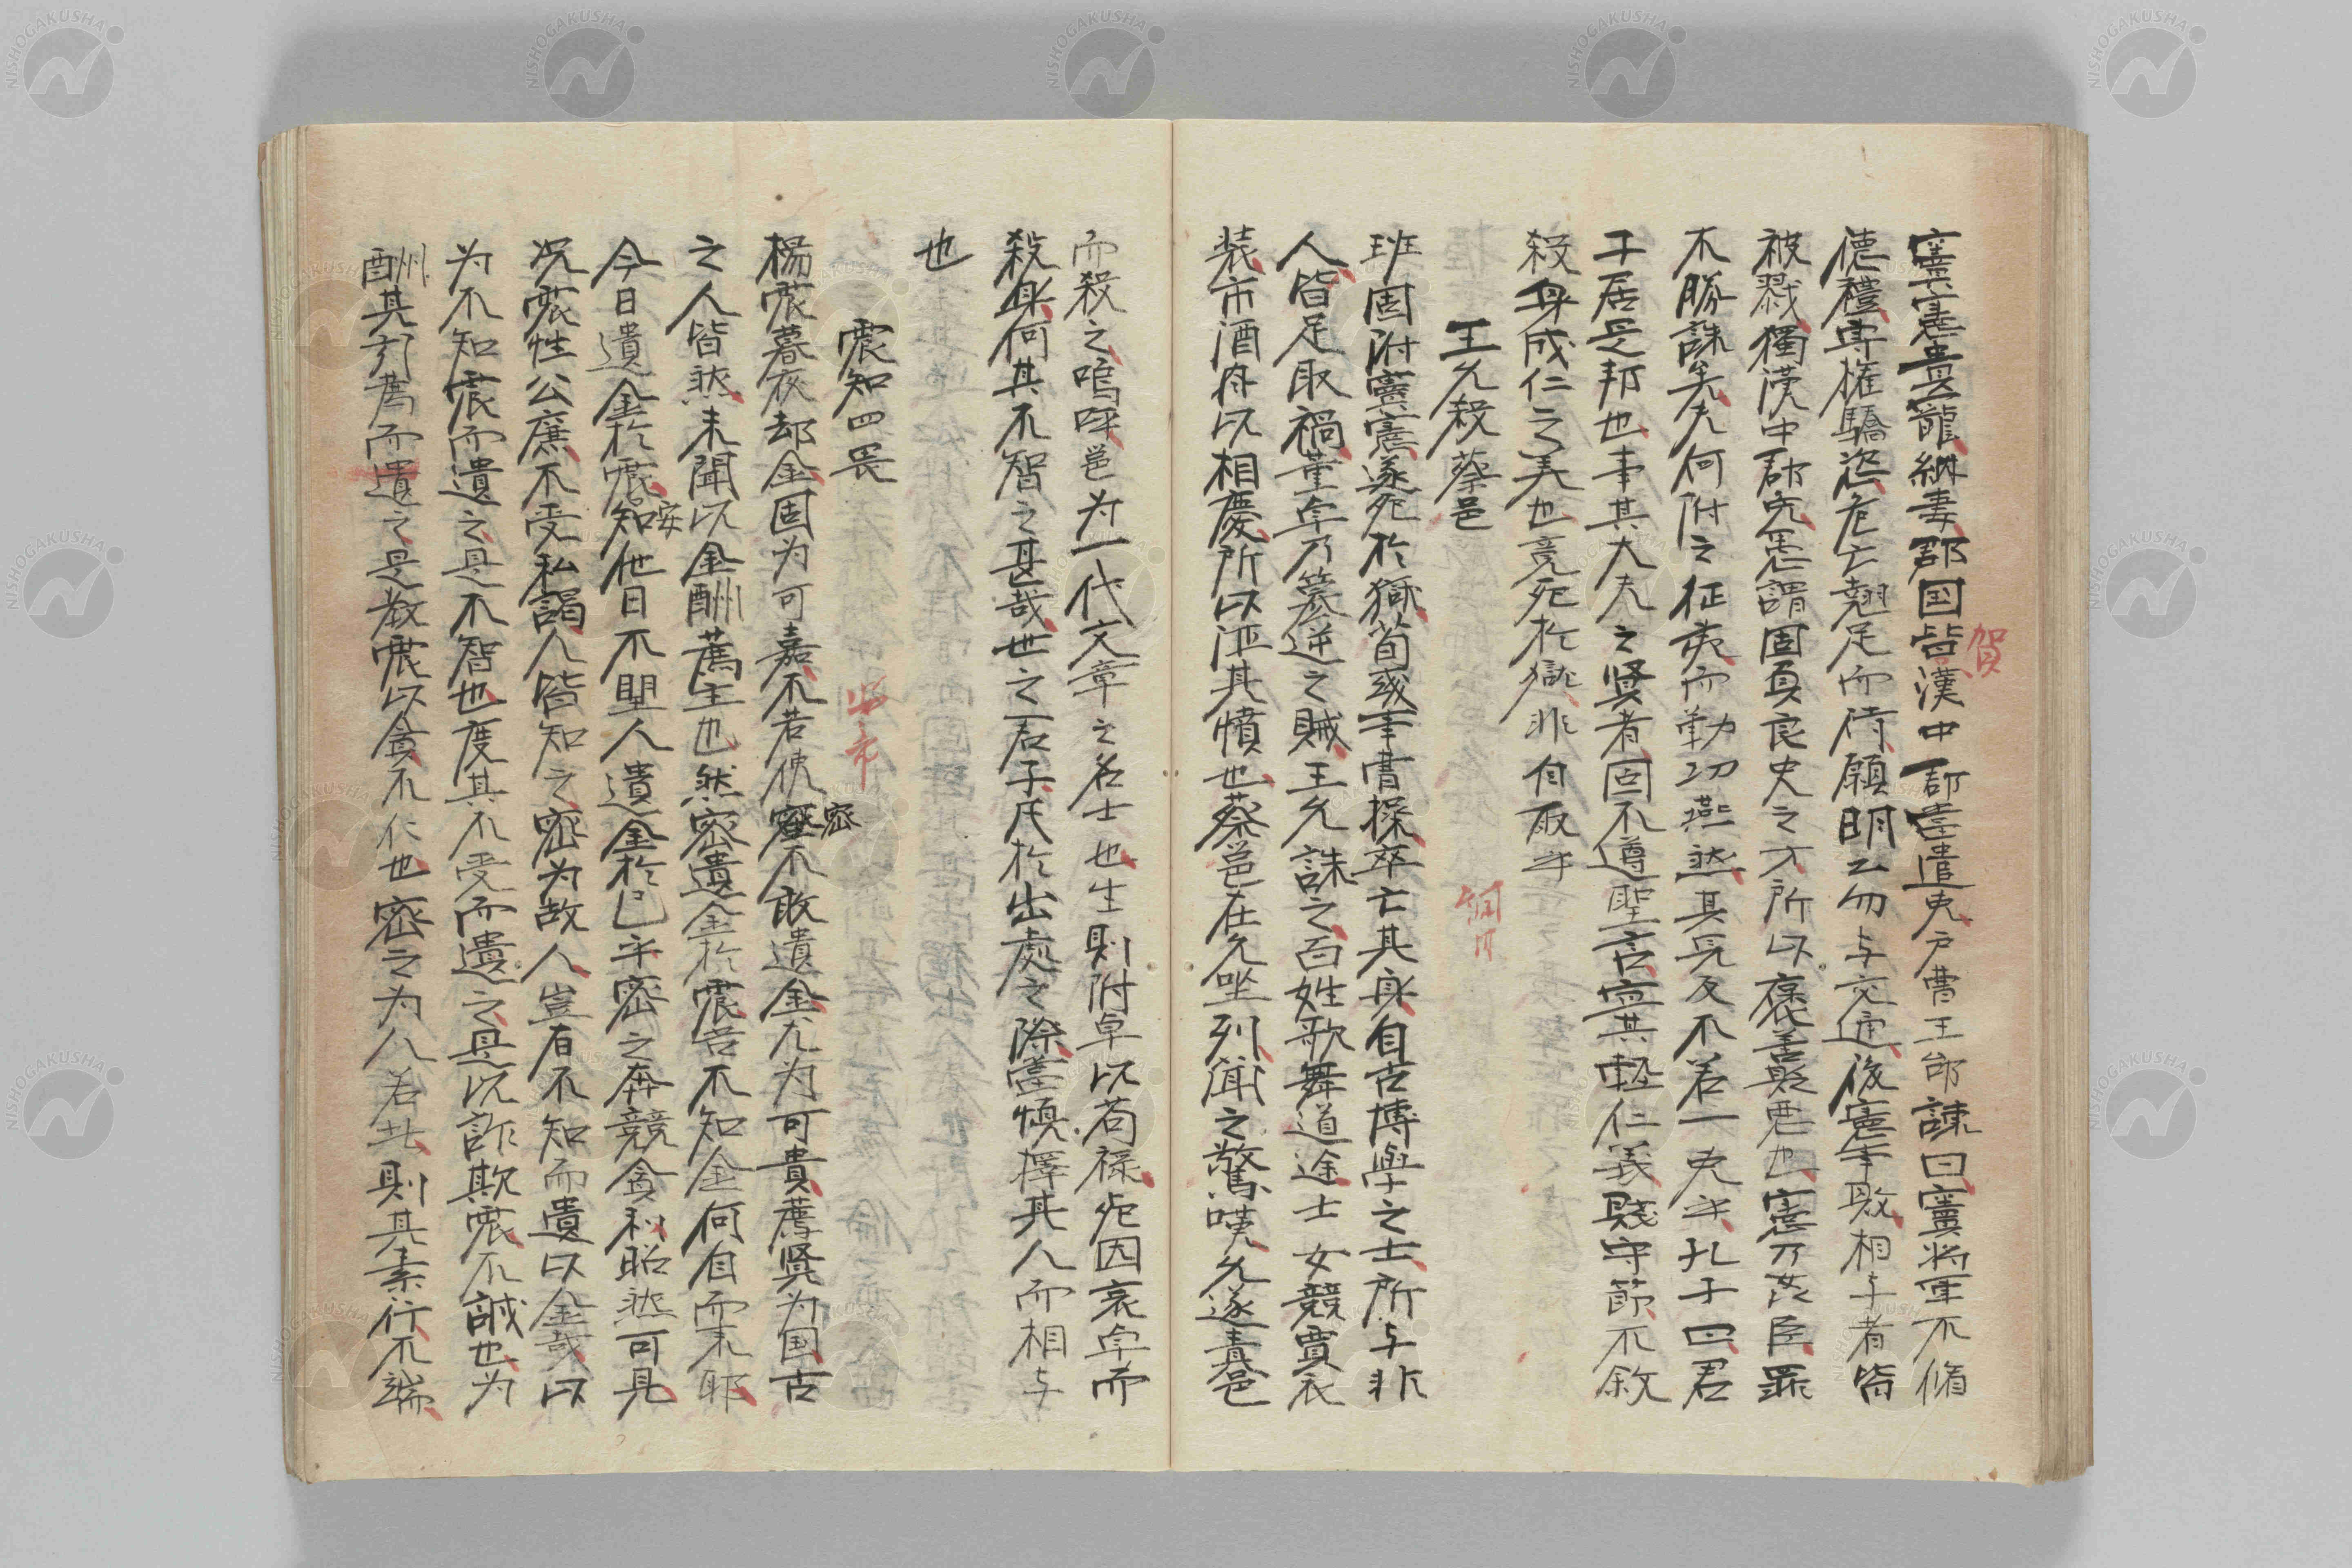 竇憲貴寵納妻郡国皆漢中郡當遣吏戸曹王郃諫曰竇将軍不脩
賀
德禮専権驕恣危亡翹足而待願明公勿与交通後憲事敗相与者皆
被戮獨漢中郡免焉謂固良史之才所以褒善貶悪也憲乃姦臣罪
不勝誅矣夫何附之征夷而勒功燕然其見反不若一吏乎孔子曰君
子居是邦也事其大夫之賢者固不遵聖言寧其軽仁義賤守節不敘
殺身成仁之美也竟死於獄非自取乎
王允殺蔡邕
班固附竇憲遂死於獄荀彧事曹操卒亡其身自古博學之士所与非
人皆足取禍董卓乃簒逆之賊王允誅之百姓歌舞道途士女競賣衣
装市酒肉以相慶所以洒其憤也蔡邕在允坐列聞之驚嘆允遂責邕
而殺之嗚呼邕为一代文章之名士也生則附卓以苟禄死因哀卓而
殺身何其不智之甚哉世之君子凡於出處之際當慎擇其人而相与
也
震知四畏
楊震暮夜却金固为可嘉不若使密不敢遺金尤为可貴薦賢为国古
密
之人皆然未聞以金酬薦主也然密遺金於震告不知金何自而来耶
今日遺金於震安知他日不望人遺金於己乎密之奔競貪利昭然可見
况震性公廉不受私謁人皆知之密为故人豈有不知而遺以金哉以
为不知震而遺之是不智也度其不受而遺之是以詐欺震不誠也为
酬其引薦而遺之是教震以貪不仁也密之为人若此則其素行不端